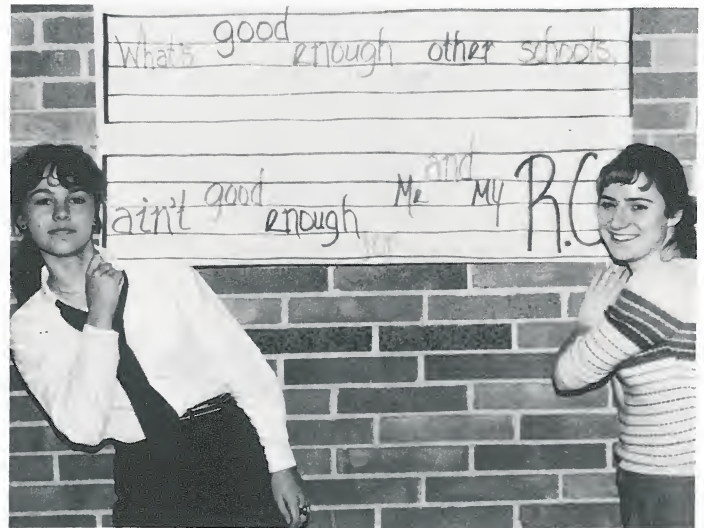 What's good enough other schools
ain't good enough Me and My R.C